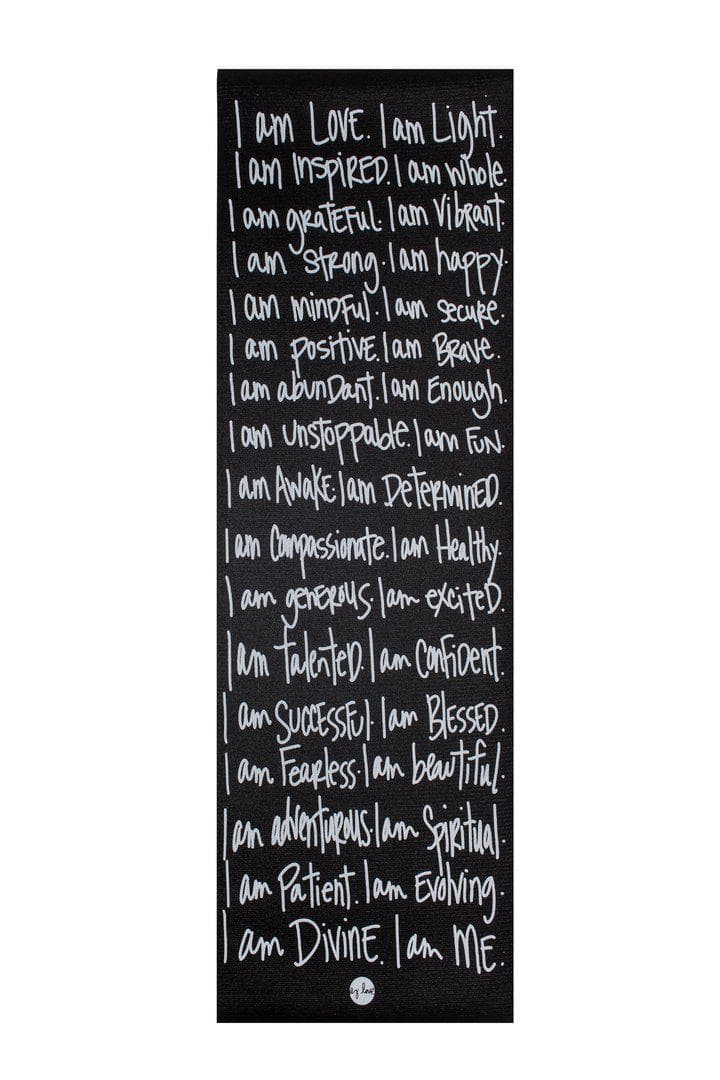 I am LOVE. I am Light.
I am INSPIRED. I am whole.
I am grateful. I am Vibrant.
I am strong. I am happy.
I am mindful. I am secure.
I am positive. I am Brave.
I am abundant. I am Enough.
I am unstoppable. I am FUN.
I am Awake. I am Determined.
I am Compassionate. I am Healthy.
I am generous. I am excited.
I am talented. I am Confident.
I am Successful. I am BLESSED.
I am Fearless. I am beautiful.
I am adventurous. I am Spiritual.
I am Patient. I am Evolving.
I am DIVINE. I am ME.
ez love